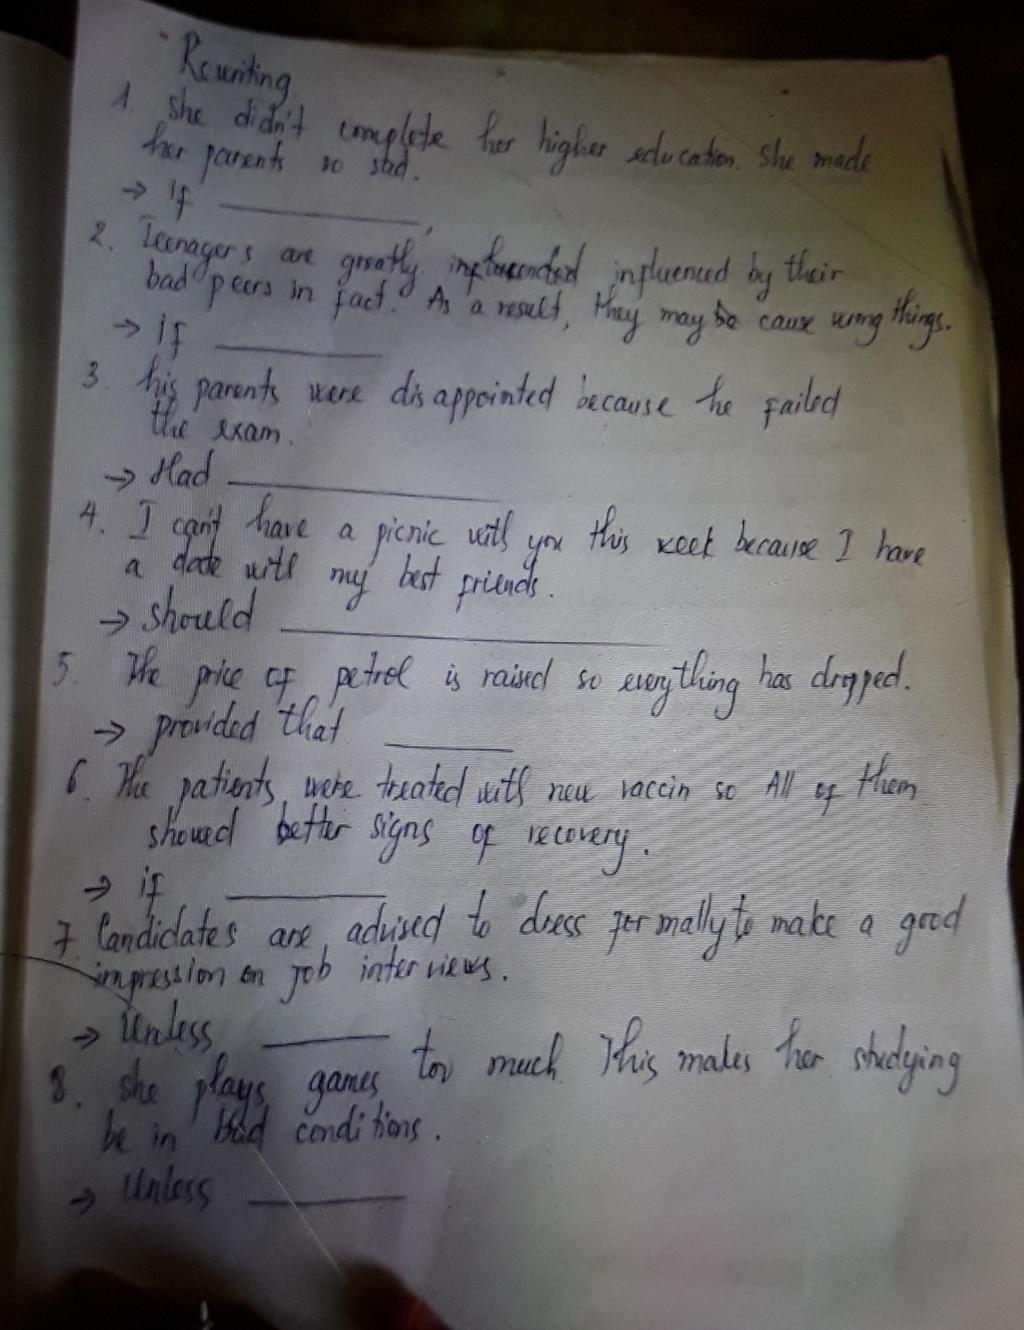 Rewriting
1. She didn't complete her higher education. She made
her parents so sad.
→ If __________,
2. Teenagers are greatly influenced by their
bad peers in fact. As a result, they may be cause wrong things.
→ if __________
3. his parents were disappointed because he failed
the exam.
→ Had __________
4. I can't have a picnic with you this week because I have
a date with my best friends.
→ should __________
5. The price of petrol is raised so everything has dropped.
→ provided that __________
6. The patients were treated with new vaccin so All of them
showed better signs of recovery.
→ if __________
7. Candidates are advised to dress formally to make a good
impression on job interviews.
→ Unless __________
8. She plays games too much. This makes her studying
be in bad conditions.
→ Unless __________